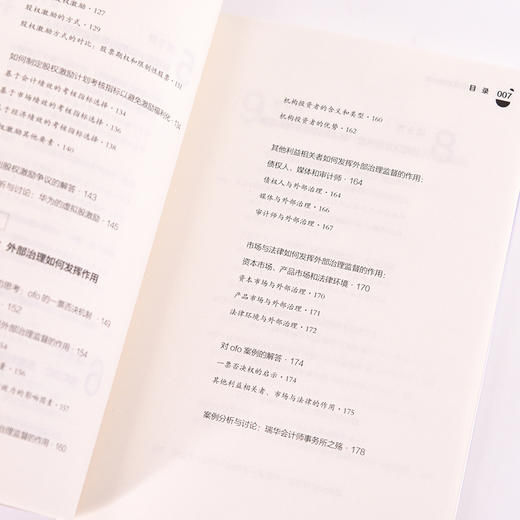 权激励 · 127
股权激励的方式 · 129
股权激励方式的对比：股票期权和限制性股票 · 131
如何制定股权激励计划考核指标以避免激励福利化 · 134
基于会计绩效的考核指标选择 · 134
基于市场绩效的考核指标选择 · 136
于经济绩效的考核指标选择 · 138
权激励其他要素 · 140
股权激励争议的解答 · 143
析与讨论：华为的虚拟股激励 · 145
外部治理如何发挥作用
思考，ofo 的一票否决机制 · 149
152
外部治理监督的作用 · 154
156
效力的影响因素 · 157
治理监督的作用 · 160
目 录 007
机构投资者的含义和类型 · 160
机构投资者的优势 · 162
其他利益相关者如何发挥外部治理监督的作用：
债权人、媒体和审计师 · 164
债权人与外部治理 · 164
媒体与外部治理 · 166
审计师与外部治理 · 167
市场与法律如何发挥外部治理监督的作用：
资本市场、产品市场和法律环境 · 170
资本市场与外部治理 · 170
产品市场与外部治理 · 171
法律环境与外部治理 · 172
对 ofo 案例的解答 · 174
一票否决权的启示 · 174
其他利益相关者、市场与法律的作用 · 175
案例分析与讨论：瑞华会计师事务所之殇 · 178